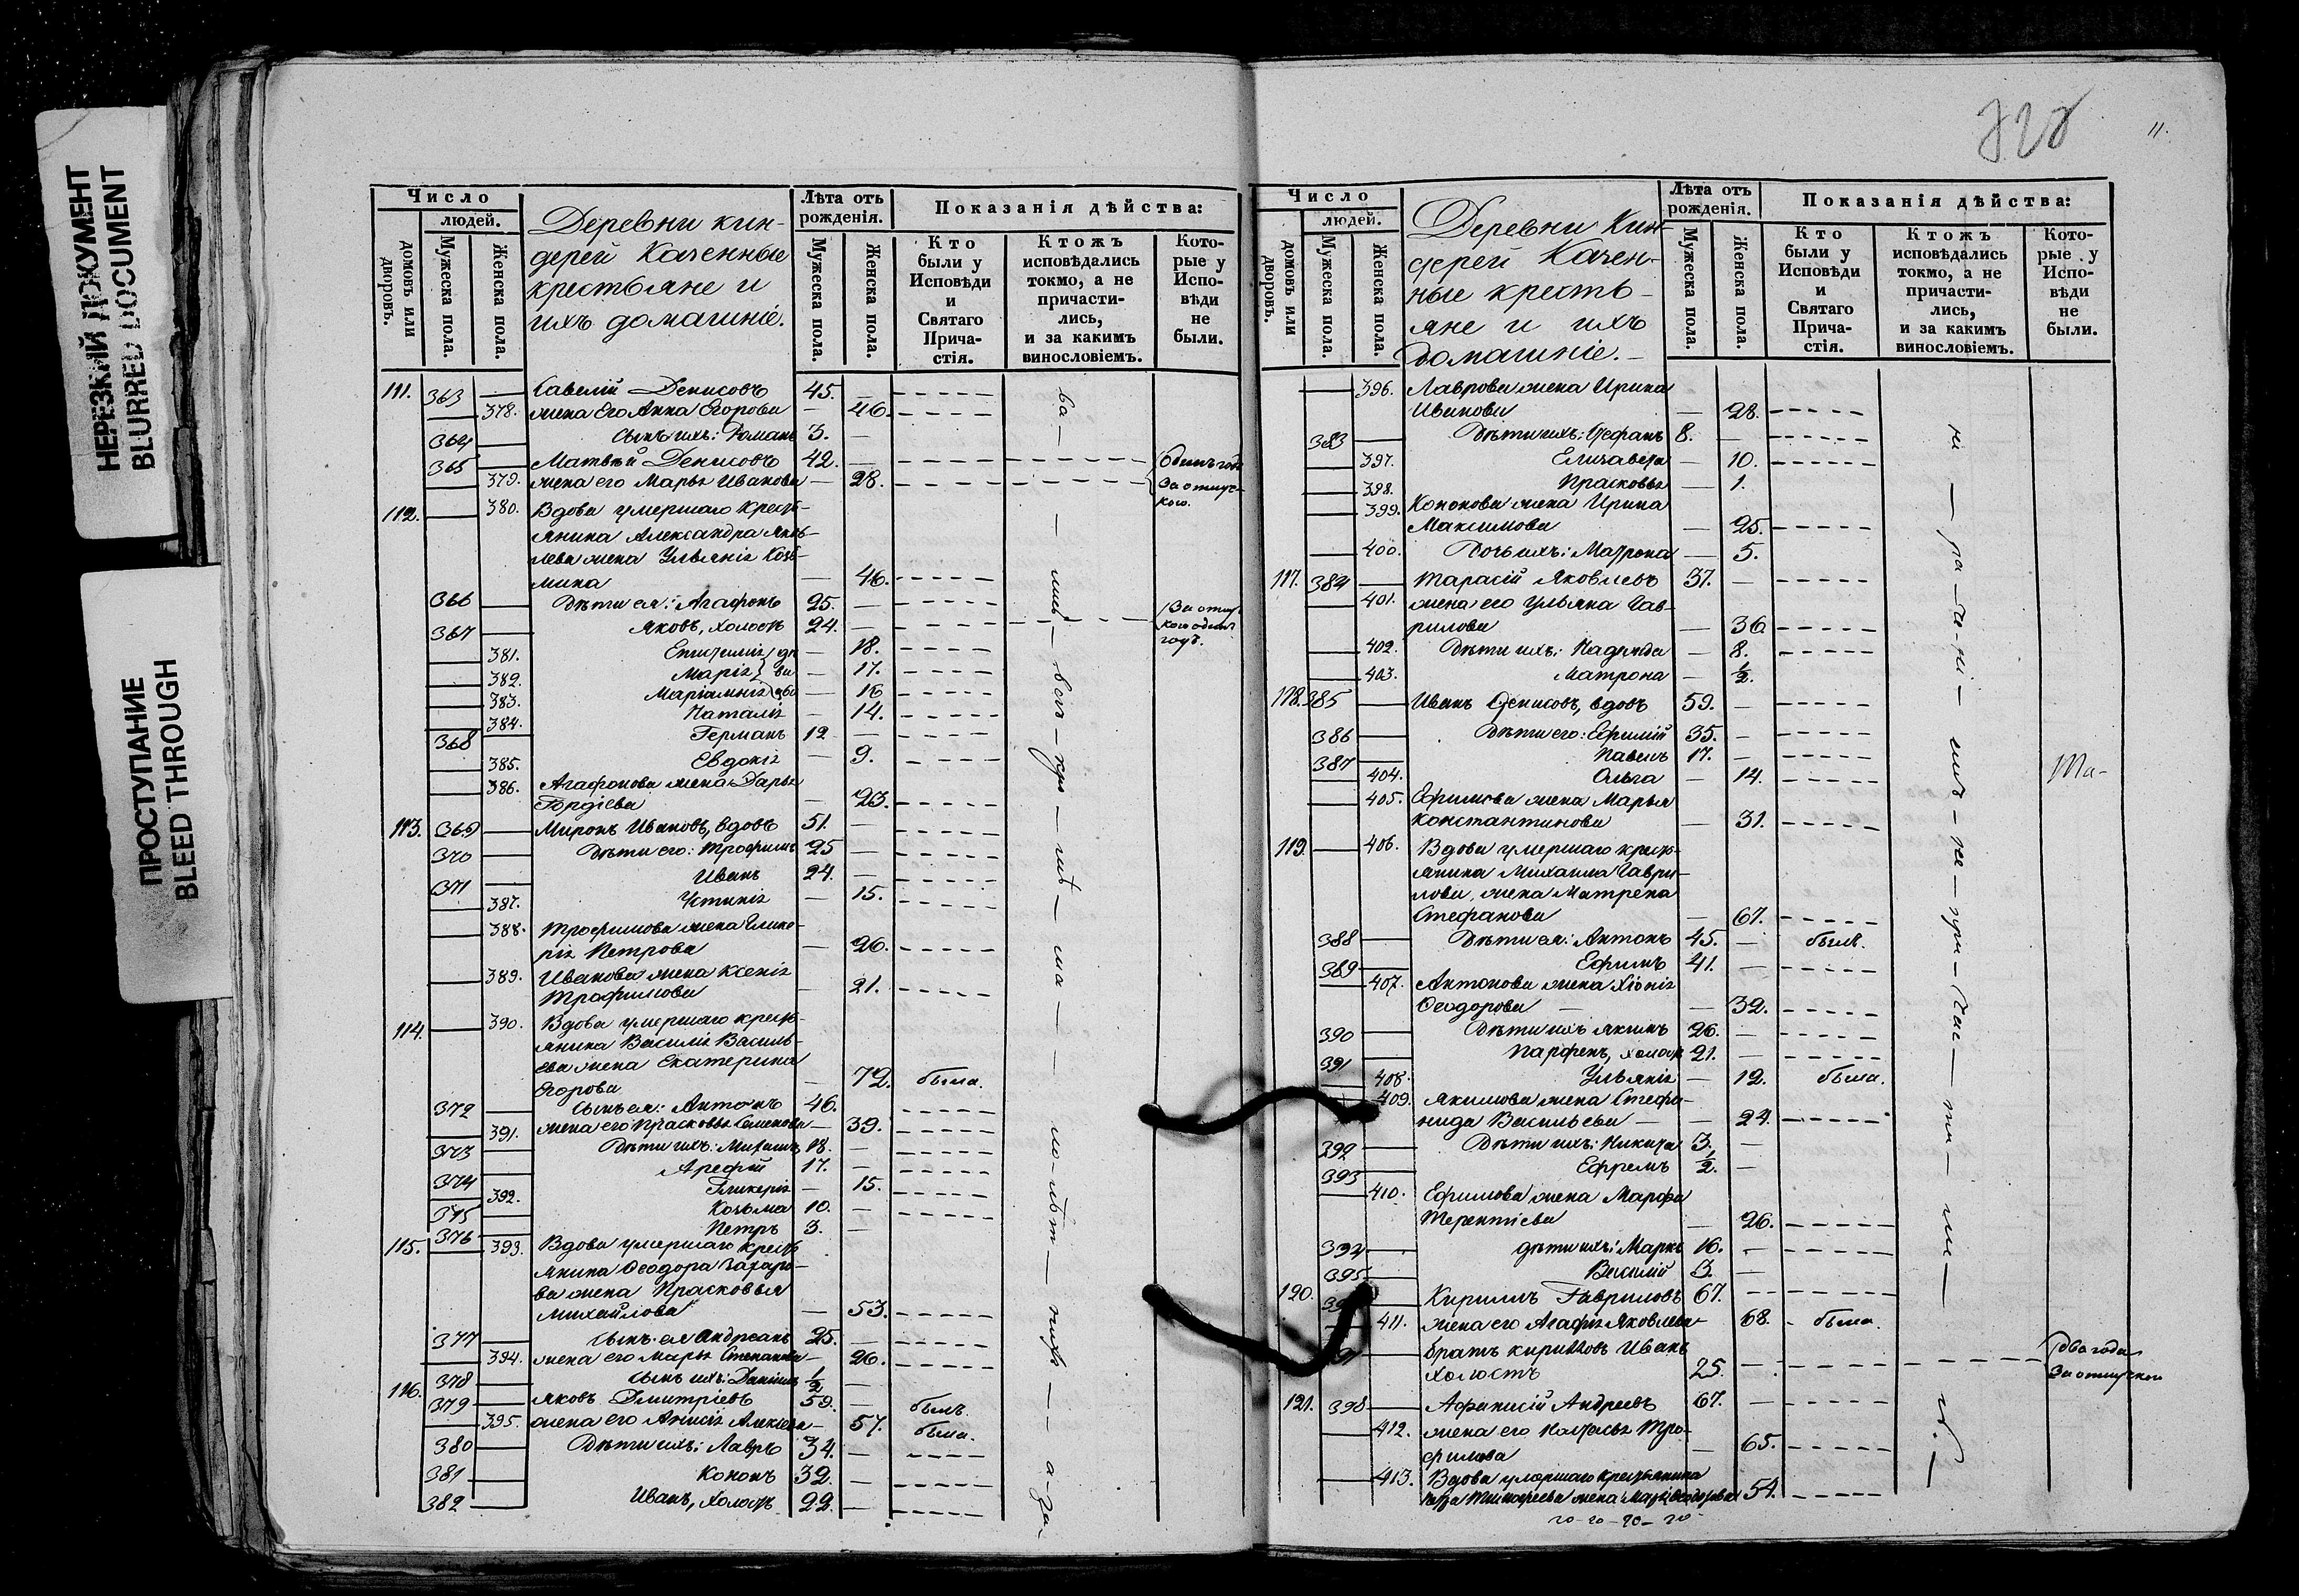 НЕРЕЗКИЙ ДОКУМЕНТ
BLURRED DOCUMENT
ПРОСТУПАНИЕ
BLEED THROUGH
Число
людей.
домовъ или дворовъ.
Мужеска пола.
Женска пола.
Деревни Кин-
дерей Казенные
крестьяне и
ихъ домашніе.
Лѣта отъ рожденія.
Мужеска пола.
Женска пола.
Показанія дѣйства:
Кто были у Исповѣди и Святаго Прича-стія.
Ктожъ исповѣдались токмо, а не причасти-лись, и за какимъ винословіемъ.
Кото-рые у Испо-вѣди не были.
111. 363 — Савелій Денисовъ 45.
378. жена его Анна Егорова — 46.
364 — сынъ ихъ: Романъ 3. —
365 — Матвѣй Денисовъ 42. — Одинъ годъ
379. жена его Марья Иванова — 28. За отлуч-
кою.
112. — 380. Вдова умершаго крестъ-
янина Александра Яков-
лева жена Ульянія Козь-
мина — 46.
366 — Дѣти ея: Агафонъ 25. —
367 — Яковъ, холостъ 24. — За отлуч-
кою одинъ
годъ.
381. — 18.
382. Марія — 17.
383. Маріамнія — 16
384. Наталія — 14.
368 Германъ 12 —
385. Евдокія — 9.
386. Агафонова жена Дарья
Гордіева — 23.
113. 369 — Миронъ Ивановъ, вдовъ 51. —
370 — Дѣти его: Трофимъ 25 —
371 — Иванъ 24. —
387. Устинія — 15.
388. Трофимова жена Глике-
рія Петрова — 26.
389. Иванова жена Ксенія
Трофимова — 21.
114. — 390. Вдова умершаго крестъ-
янина Василія Василь-
ева жена Екатерина
Егорова — 72. была.
372 — сынъ ея: Антонъ 46.
391. жена его Прасковья Семенова — 39.
373 — Дѣти ихъ: Михаилъ 18. —
374 — Арефій 17. —
392. Гликерія — 15.
375 — Козьма 10. —
376 — Петръ 3. —
115. — 393. Вдова умершаго крестъ
янина Ѳеодора Захаро-
ва жена Прасковья
Михайлова — 53.
377 — сынъ ея Андреанъ 25. —
394. жена его Марья Степанова — 26.
378 — сынъ ихъ: Даніилъ ½ —
116. 379 — Яковъ Дмитріевъ 59. — былъ.
395. жена его Анисія Алексѣева — 57. была.
380 — Дѣти ихъ: Лавръ 34. —
381 — Кононъ 32. —
382 — Иванъ, холостъ 22. —
328
11.
Число
людей.
домовъ или дворовъ.
Мужеска пола.
Женска пола.
Деревни Кин-
дерей Казен-
ные кресть-
яне и ихъ
домашніе.—
Лѣта отъ рожденія.
Мужеска пола.
Женска пола.
Показанія дѣйства:
Кто были у Исповѣди и Святаго Прича-стія.
Ктожъ исповѣдались токмо, а не причасти-лись, и за какимъ винословіемъ.
Кото-рые у Испо-вѣди не были.
— 396. Лаврова жена Ирина
Иванова — 28.
383 — Дѣти ихъ: Стефанъ 8. —
397. Елизавета — 10.
398. Прасковья — 1.
399. Кононова жена Ирина
Максимова — 25.
400. Дочь ихъ: Матрона — 5.
117. 384 — Тарасій Яковлевъ 37. —
401. жена его Ульяна Гав-
рилова — 36
402. Дѣти ихъ: Надежда — 8.
403. Матрона — ½.
118. 385 — Иванъ Денисовъ, вдовъ 59. —
386 — Дѣти его: Ефимій 35. —
387 Павелъ 17. —
404. Ольга — 14.
Та-
405. Ефимова жена Марья
Константинова — 31.
119. — 406. Вдова умершаго крестъ-
янина Михаила Гаври-
лова жена Матрена
Стефанова — 67.
388 — Дѣти ея: Антонъ 45. — былъ.
389 — Ефимъ 41. —
407. Антонова жена Хіонія
Ѳеодорова — 39.
390 — Дѣти ихъ Якимъ 26. —
391 — Парфенъ, холостъ 21. —
408. Ульянія — 12. была.
409. Якимова жена Стефа-
нида Васильева — — 24.
392 — Дѣти ихъ: Никита 3. —
393 Ефремъ ½. —
410. Ефимова жена Марфа
Терентіева — 26.
394 — дѣти ихъ: Маркъ 16. —
395 — Василій 3. —
120. Кириллъ Гавриловъ 67. —
411. жена его Агафія Яковлева — 68. была.
братъ Кирилловъ Иванъ
холостъ 25. — Два года
За отлучкой
121. 398 — Афанасій Андреевъ 67. —
412. жена его Наталья Тро-
фимова — 65.
413. Вдова умершаго крестьянина
Петра Тимофеева жена Марья Ѳеодорова 54.